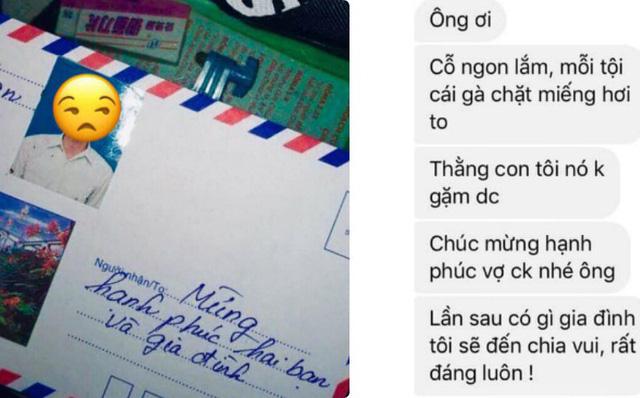 Người nhận/To:
Mừng
hạnh phúc hai bạn
và gia đình
Ông ơi
Cỗ ngon lắm, mỗi tội
cái gà chặt miếng hơi
to
Thằng con tôi nó k
gặm dc
Chúc mừng hạnh
phúc vợ ck nhé ông
Lần sau có gì gia đình
tôi sẽ đến chia vui, rất
đáng luôn !